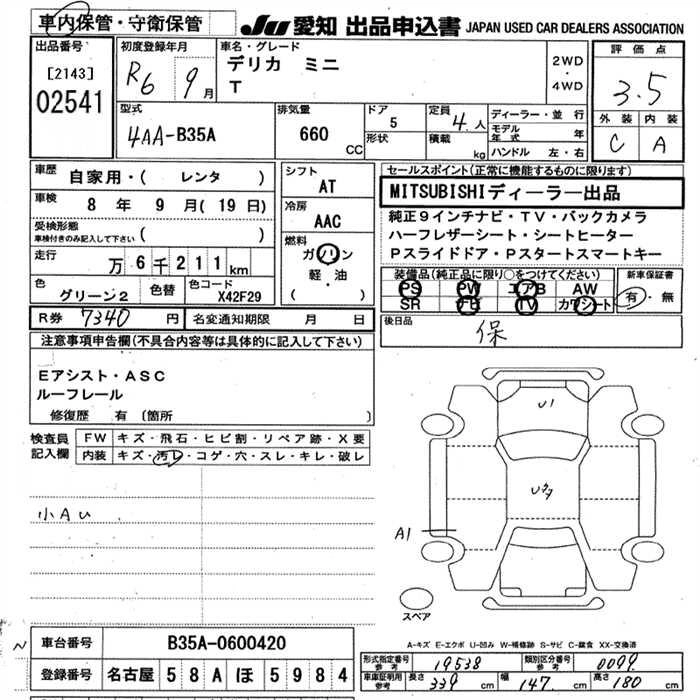 車内保管・守衛保管 JU 愛知 出品申込書 JAPAN USED CAR DEALERS ASSOCIATION
出品番号
[2143]
02541
初度登録年月
R6 9月
車名・グレード
デリカ ミニ
T
2WD
・
4WD
評価点
3.5
外装 内装
C A
型式
4AA-B35A
排気量
660 CC
ドア
5
形状
定員
4人
積載
kg
ディーラー・並行
モデル年式 年
ハンドル 左・右
車歴 自家用・( レンタ )
車検 8年 9月(19日)
受検形態
車検付きのみ記入して下さい ( )
走行 万6千211km
色 グリーン2 色替 色コード X42F29
シフト
AT
冷房
AAC
燃料
ガソリン
軽・油
( )
セールスポイント(正常に機能するものに限ります)
MITSUBISHIディーラー出品
純正9インチナビ・TV・バックカメラ
ハーフレザーシート・シートヒーター
Pスライドドア・Pスタートスマートキー
装備品(純正品に限り○をつけてください)
PS PW エアB AW
SR ナビ TV カワシート
新車保証書
有・無
R券 7340円 名変通知期限 月 日
後日品
保
注意事項申告欄(不具合内容等は具体的に記入して下さい)
Eアシスト・ASC
ルーフレール
修復歴 有(箇所 )
検査員記入欄
FW キズ・飛石・ヒビ割・リペア跡・X要
内装 キズ・汚レ・コゲ・穴・スレ・キレ・破レ
小AU
U1
A1
スペア
A-キズ E-エクボ U-凹み W-補修跡 S-サビ C-腐食 XX-交換済
車台番号 B35A-0600420
登録番号 名古屋 58A ほ 5984
形式指定番号 参考 19538 類別区分番号 参考 0099
車庫証明用 参考 長さ 339cm 幅 147cm 高さ 180cm